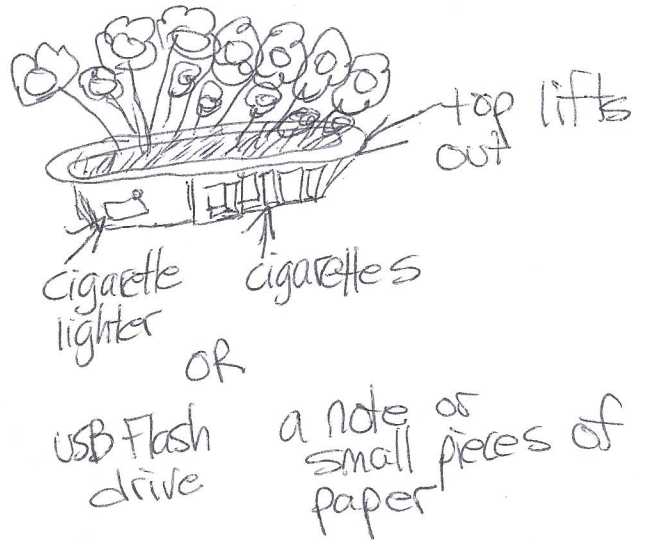 top lifts
out
cigarette
lighter
cigarettes
OR
USB Flash
drive
a note or
small pieces of
paper